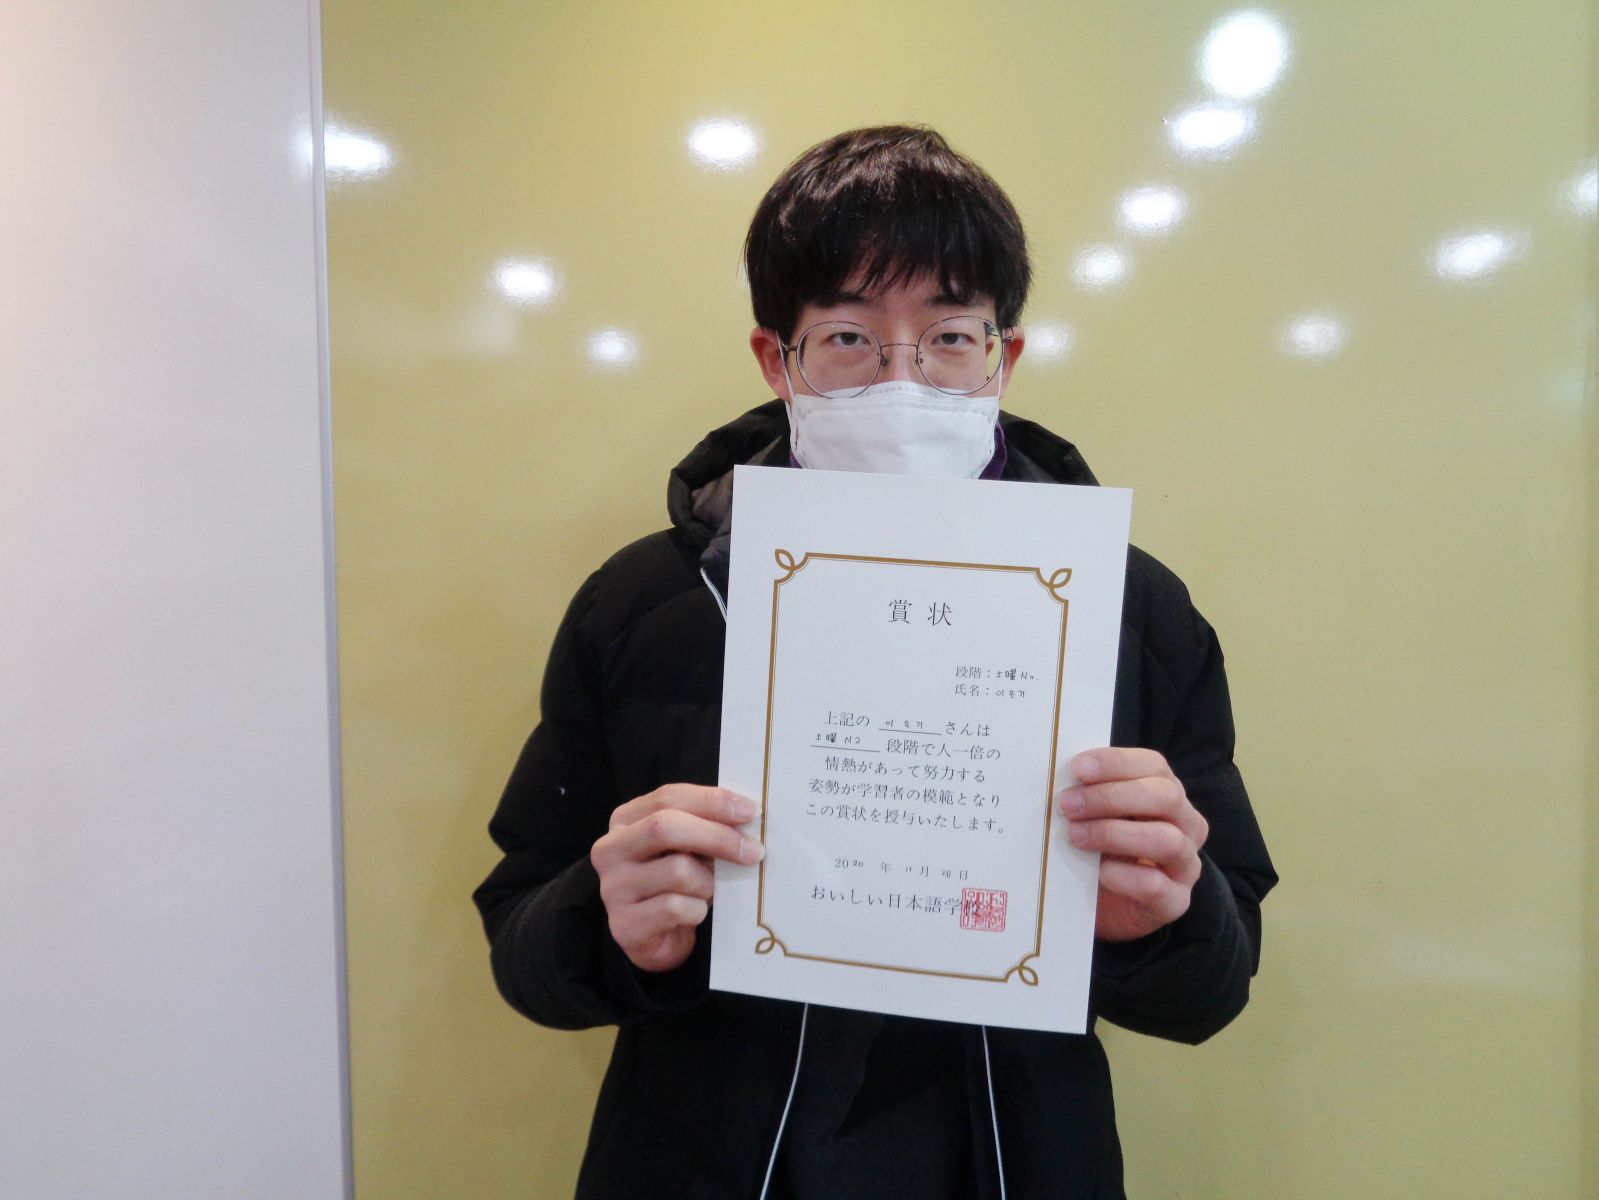 賞状
段階：土曜 N2
氏名：이은기
上記の 이은기 さんは
土曜 N2 段階で人一倍の
情熱があって努力する
姿勢が学習者の模範となり
この賞状を授与いたします。
2020 年 11月 28日
おいしい日本語学校